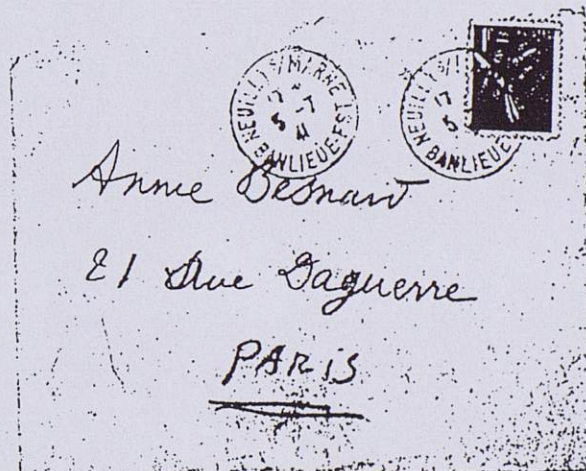 NEUILLY S/MARNE
BANLIEUE EST
41
NEUILLY S/
BANLIEUE
Annie Besnard
21 Rue Daguerre
PARIS